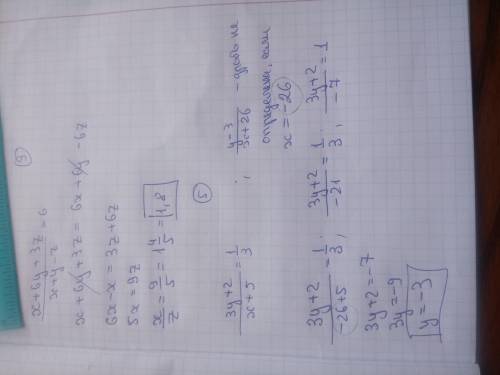 ③
x+6y+3z / x+y-z = 6
x+6y+3z = 6x+6y-6z
6x-x = 3z+6z
5x = 9z
x/z = 9/5 = 1 4/5 = 1,8
⑤
3y+2 / x+5 = 1/3 ; y-3 / x+26 - дробь не
определена, если
x = -26
3y+2 / -26+5 = 1/3 ; 3y+2 / -21 = 1/3 ; 3y+2 / -7 = 1
3y+2 = -7
3y = -9
y = -3